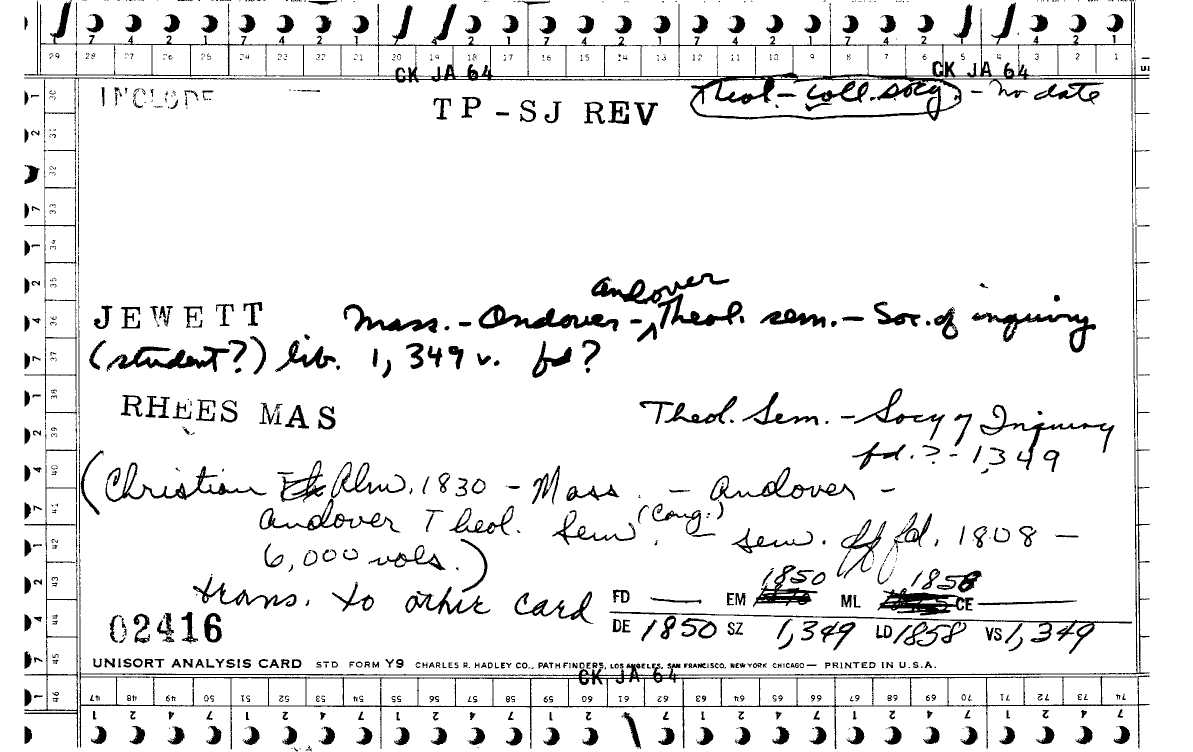 7 4 2 1 7 4 2 1 7 4 2 1 7 4 2 1 7 4 2 1 7 4 2 1 7 4 2 1
29 28 27 26 25 24 23 22 21 20 19 18 17 16 15 14 13 12 11 10 9 8 7 6 5 4 3 2 1
CK JA 64 CK JA 64
INCLUDE
TP-SJ REV
Theol.-coll. socy. - no date
andover
JEWETT Mass. - Andover - Theol. sem. - Soc. of inquiry
(student?) lib. 1,349 v. fd?
RHEES MAS
Theol. Sem. - Socy of Inquiry
fd.? - 1,349
(Christian Alm. 1830 - Mass. - Andover -
Andover Theol. Sem. (Cong.) - sem. fd. 1808 -
6,000 vols.)
trans. to other card
1850 1858
FD — EM ML CE —
02416
DE 1850 SZ 1,349 LD 1858 VS 1,349
UNISORT ANALYSIS CARD STD FORM Y9 CHARLES R. HADLEY CO., PATHFINDERS, LOS ANGELES, SAN FRANCISCO, NEW YORK CHICAGO — PRINTED IN U.S.A.
CK JA 64
47 48 49 50 51 52 53 54 55 56 57 58 59 60 61 62 63 64 65 66 67 68 69 70 71 72 73 74
1 2 4 7 1 2 4 7 1 2 4 7 1 2 4 7 1 2 4 7 1 2 4 7 1 2 4 7